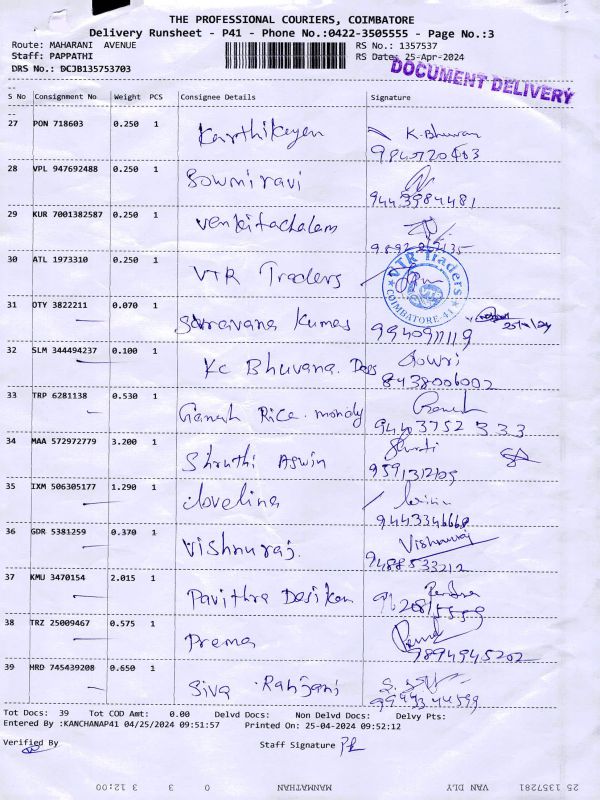 THE PROFESSIONAL COURIERS, COIMBATORE
Delivery Runsheet - P41 - Phone No.:0422-3505555 - Page No.:3
Route: MAHARANI AVENUE RS No.: 1357537
Staff: PAPPATHI RS Date: 25-Apr-2024
DRS No.: DCJB135753703
DOCUMENT DELIVERY
S No Consignment No Weight PCS Consignee Details Signature
27 PON 718603 0.250 1 Karthikeyan K. Bhuvan
28 VPL 947692488 0.250 1 Sowmiravi
9443984481
29 KUR 7001382587 0.250 1 Venkitachalam
30 ATL 1973310 0.250 1 VTR Traders
VTR Traders
COIMBATORE-41
31 OTY 3822211 0.070 1 Saravana Kumar
9940911119
32 SLM 344494237 0.100 1 KC Bhuvana. Dass Gowri
8438006002
33 TRP 6281138 0.530 1 Ganesh Rice. mondy Ganesh
94403752 333
34 MAA 572972779 3.200 1 Shruthi Aswin
9591312105
35 IXM 506305177 1.290 1 lovelina
9443346668
36 GDR 5381259 0.370 1 Vishnuraj. Vishnuraj
9488533212
37 KMU 3470154 2.015 1 Pavithra Desikan
38 TRZ 25009467 0.575 1 Prema
9894945202
39 HRD 745439208 0.650 1 Siva Ranjani
9944344599
Tot Docs: 39 Tot COD Amt: 0.00 Delvd Docs: Non Delvd Docs: Delvy Pts:
Entered By :KANCHANAP41 04/25/2024 09:51:57 Printed On: 25-04-2024 09:52:12
Verified By Staff Signature
25 1357281 VAN DLY MANMATHAN 0 3 3 12:00